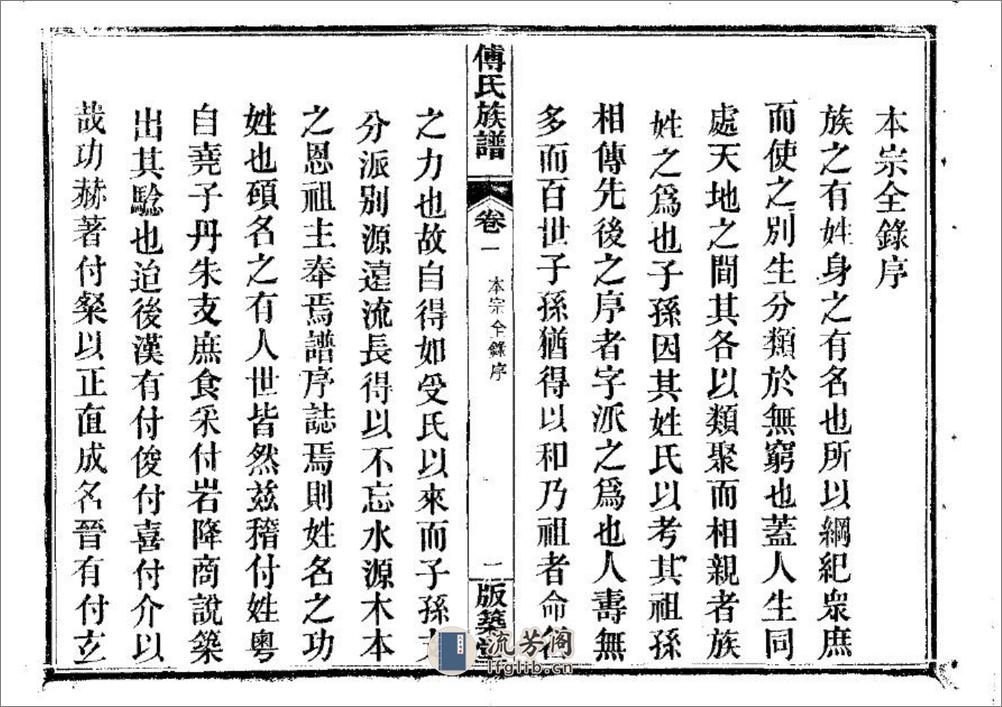 本宗全錄序
族之有姓身之有名也所以綱紀衆庶
而使之別生分類於無窮也蓋人生同
處天地之間其各以類聚而相親者族
姓之爲也子孫因其姓氏以考其祖孫
相傳先後之序者字派之爲也人壽無
多而百世子孫猶得以和乃祖者命名
傅氏族譜
卷一
本宗全錄序
一
版築堂
之力也故自得如受氏以來而子孫
分派別源遠流長得以不忘水源木本
之恩祖主奉焉譜序誌焉則姓名之功
姓也碩名之有人世皆然兹稽付姓粵
自堯子丹朱支庶食采付岩降商說築
出其騐也迨後漢有付俊付喜付介以
哉功赫著付粲以正直成名晉有付玄
流芳阁
lfglib.cn